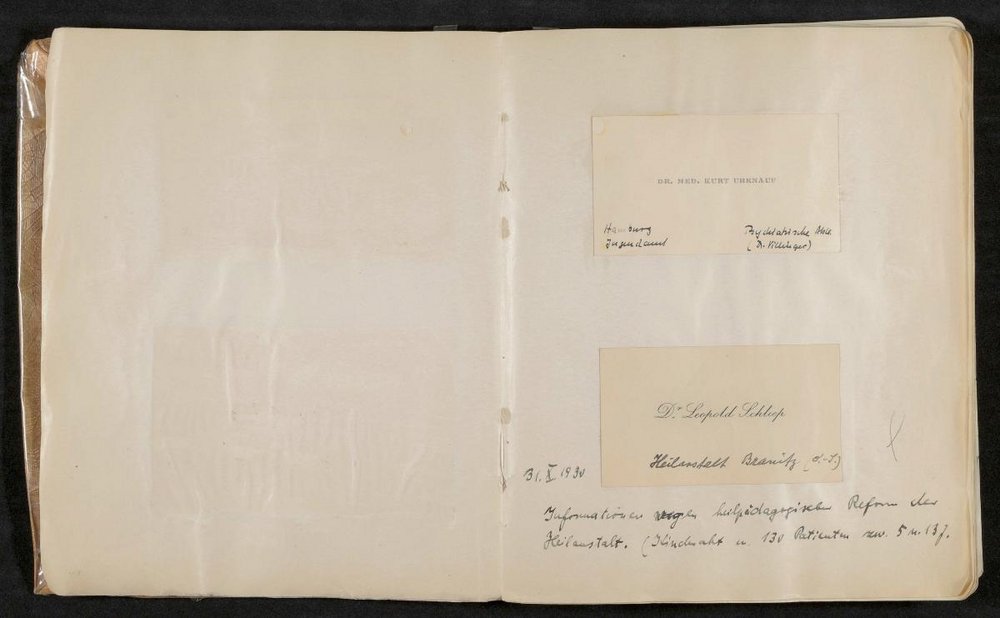 DR. MED. KURT UHKNAUF
Hamburg
Jugendamt
Psychiatrische Abt.
(D. Villinger)
Dr Leopold Schliep
Heilanstalt Branitz (O.-S.)
31. X 1930
Informationen wegen heilpädagogischer Reform der
Heilanstalt. (Kinderabt m. 130 Patienten zw. 5 u. 13 J.